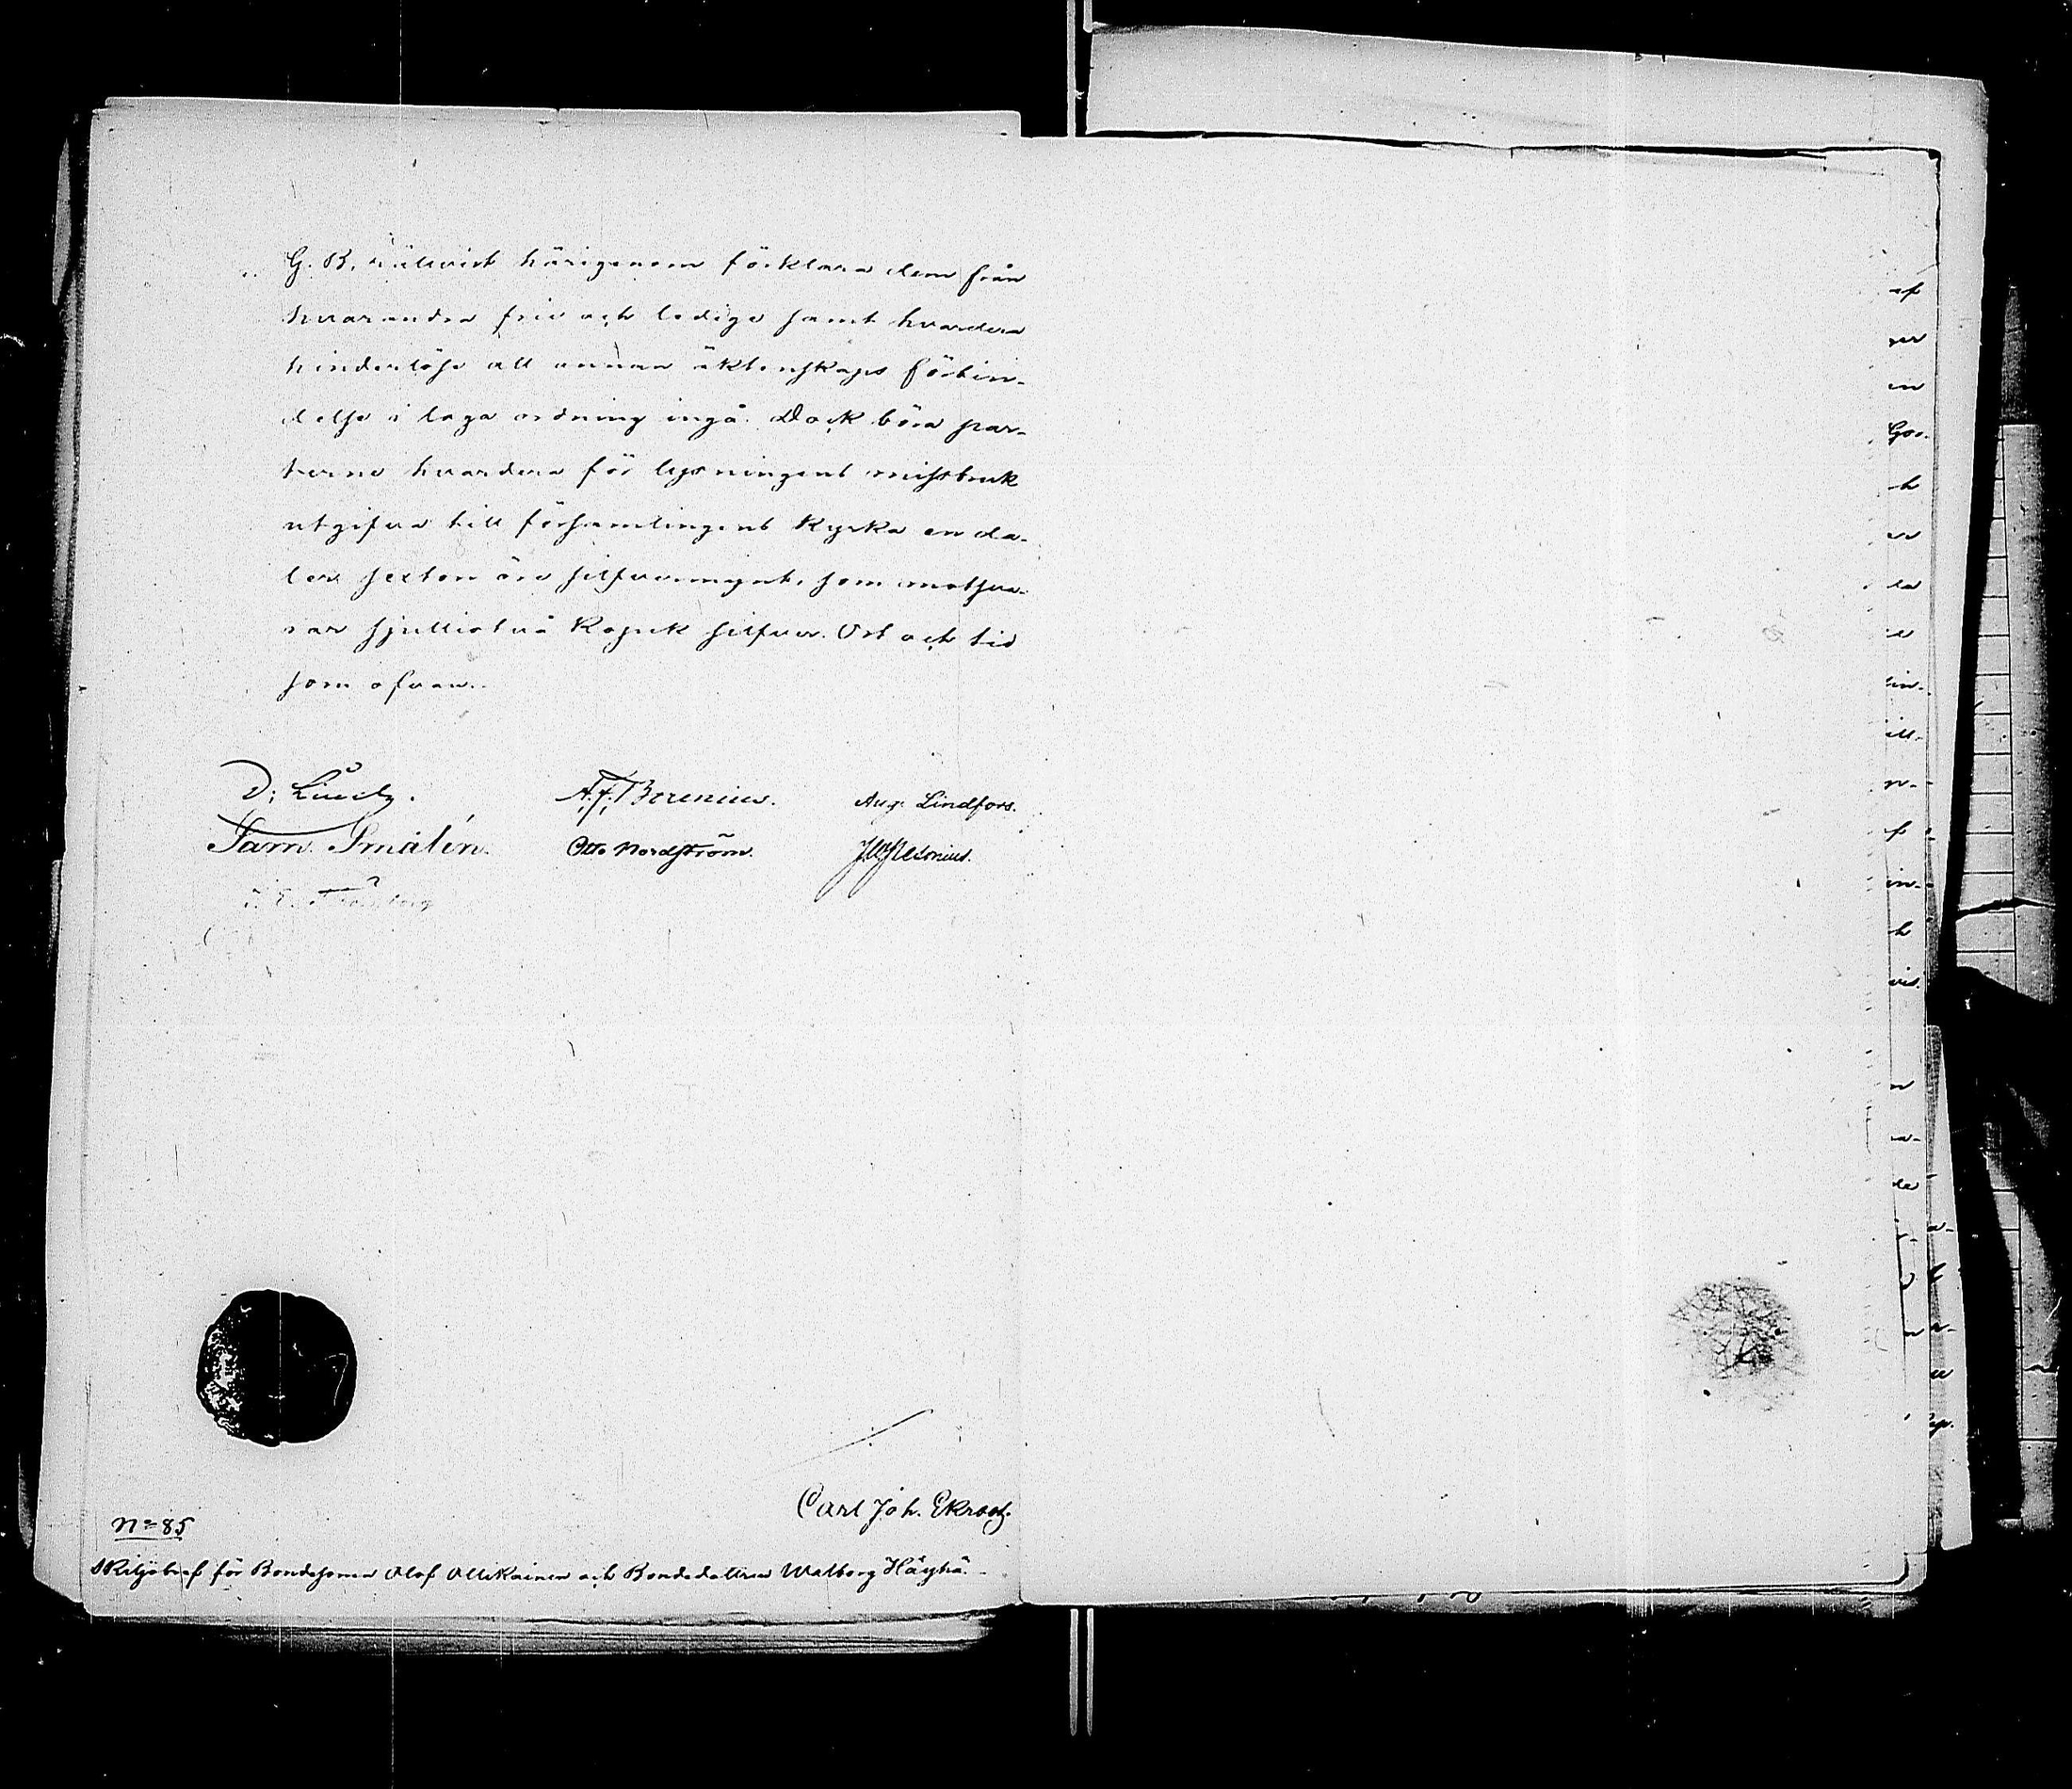 G. B. rättvist härigenom förklara dem från
hvarandra frie och ledige samt hvardera
hinderlöse att annan äktenskaps förbin-
delse i laga ordning ingå. Dock böra par-
terne hvardera för lysningens missbruk
utgifva till församlingens Kyrka en da-
ler sexton öre silfvermynt, som motsva-
rar sjuttiotvå Kopek silfver. Ort och tid
som ofvan.
A. F. Borenius.
Aug. Lindfors.
Sam. Smalén.
Otto Nordström.
Carl Joh. Ekroos.
No 85
Skiljobref för Bondesonen Olof Ollikainen och Bondedottren Walborg Häyhä.
af
en
Goo.
h
la
lin-
ill-
n-
f
in-
h
vis.